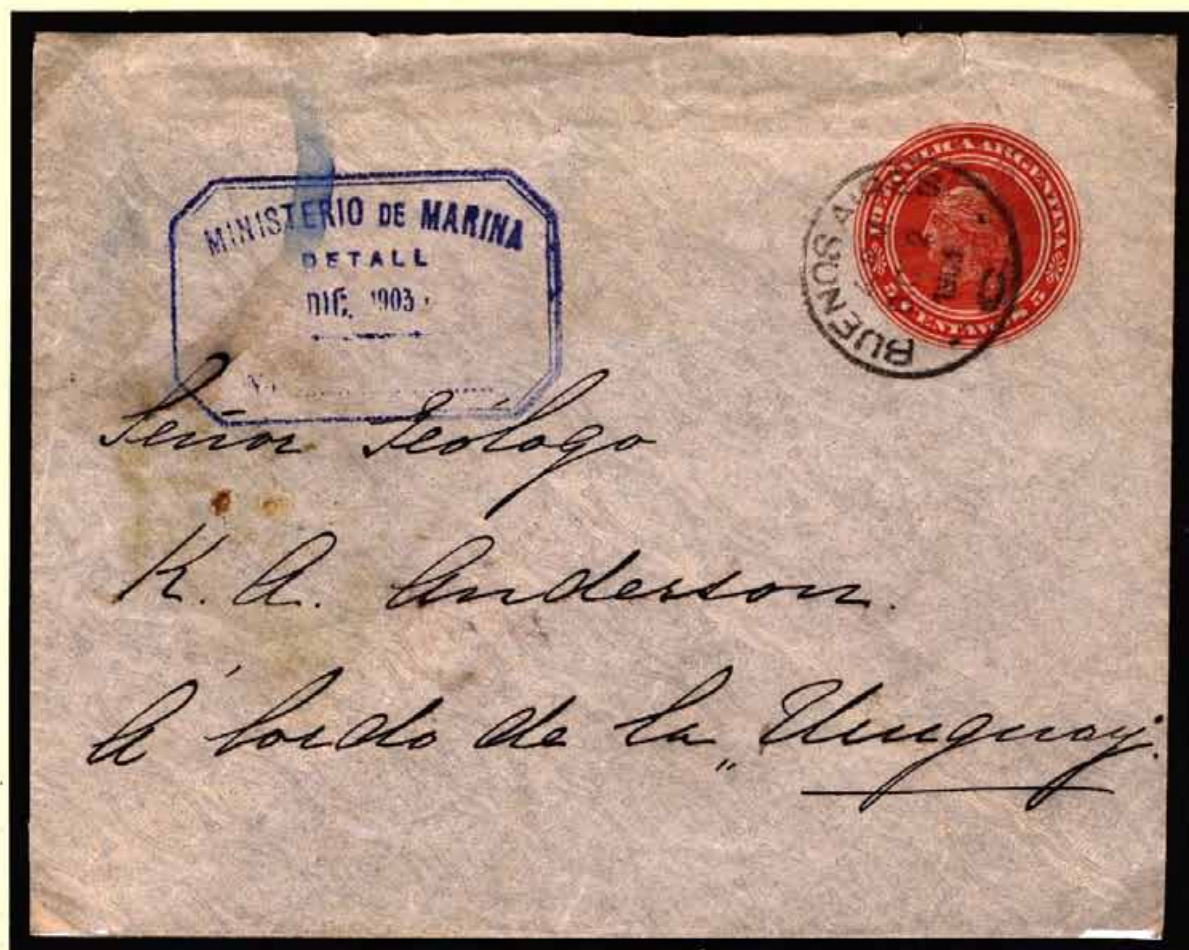 MINISTERIO DE MARINA
DETALL
DIC. 1903
REPUBLICA ARGENTINA
5 CENTAVOS 5
BUENOS AIRES
Señor Geólogo
K. A. Anderson.
Á bordo de la „Uruguay.